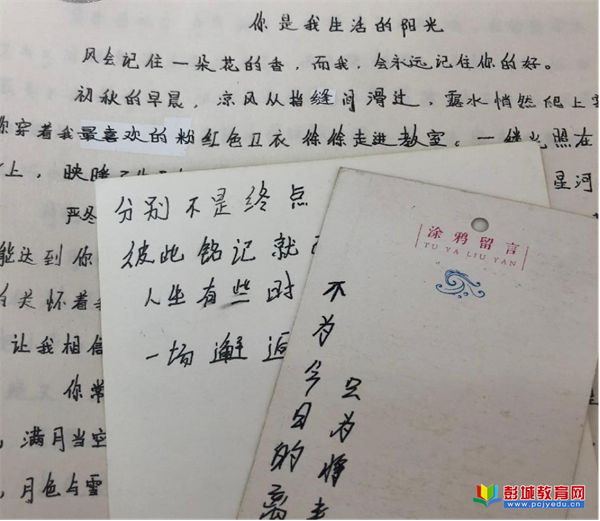 你是我生活的阳光
风会记住一朵花的香，而我，会永远记住你的好。
初秋的早晨，凉风从指缝间滑过，露水悄然爬上
你穿着我最喜欢的粉红色卫衣徐徐走进教室。一缕光照在
上，映
星河
严冬
能达到你
关怀着我
让我相信
你常
，满月当空
，月色与雪
分别不是终点
彼此铭记就
人生有些时
一场邂逅
涂鸦留言
TU YA LIU YAN
不为今日的离去
只为
彭城教育网
www.pcjyedu.cn